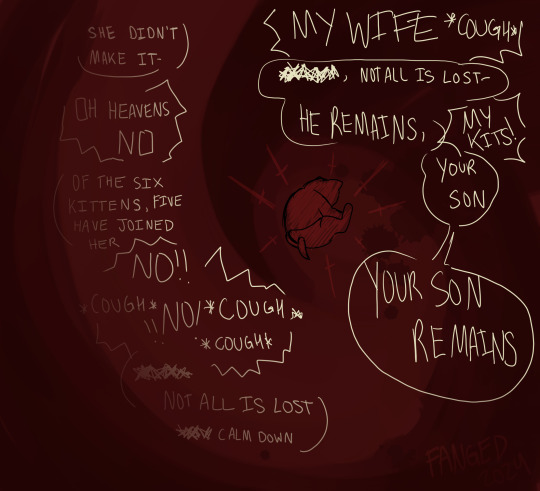 SHE DIDN'T
MAKE IT-
OH HEAVENS
NO
OF THE SIX
KITTENS, FIVE
HAVE JOINED
HER
NO!!
*COUGH*
!!NO!
*COUGH*
*COUGH*
NOT ALL IS LOST
CALM DOWN
MY WIFE *COUGH*
, NOT ALL IS LOST-
HE REMAINS,
MY
KITS!
YOUR
SON
YOUR SON
REMAINS
FANGED